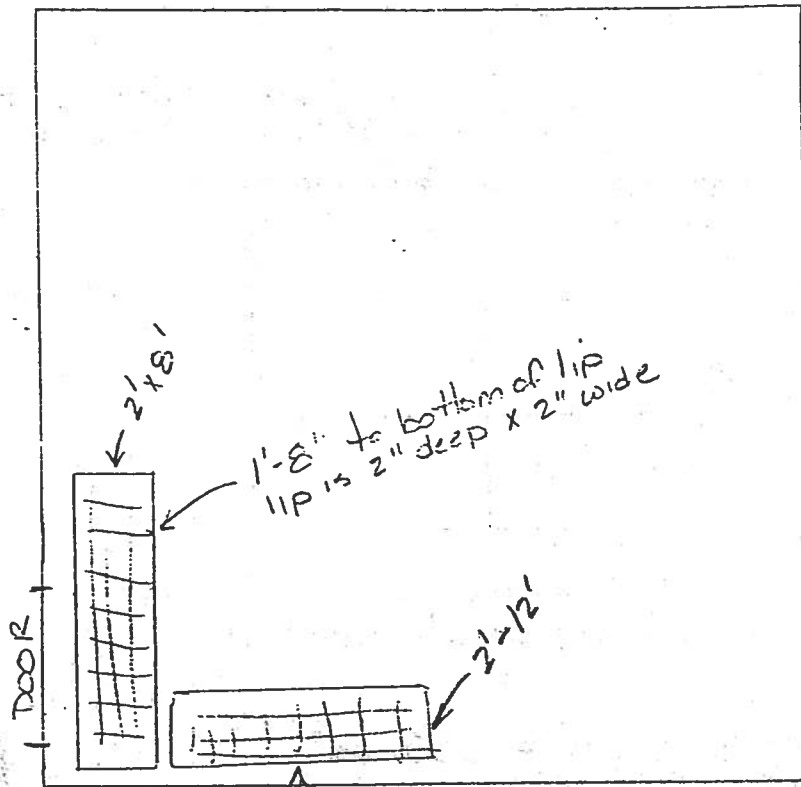 2' x 8'
1'-8" to bottom of lip
lip is 2" deep x 2" wide
DOOR
2' x 12'